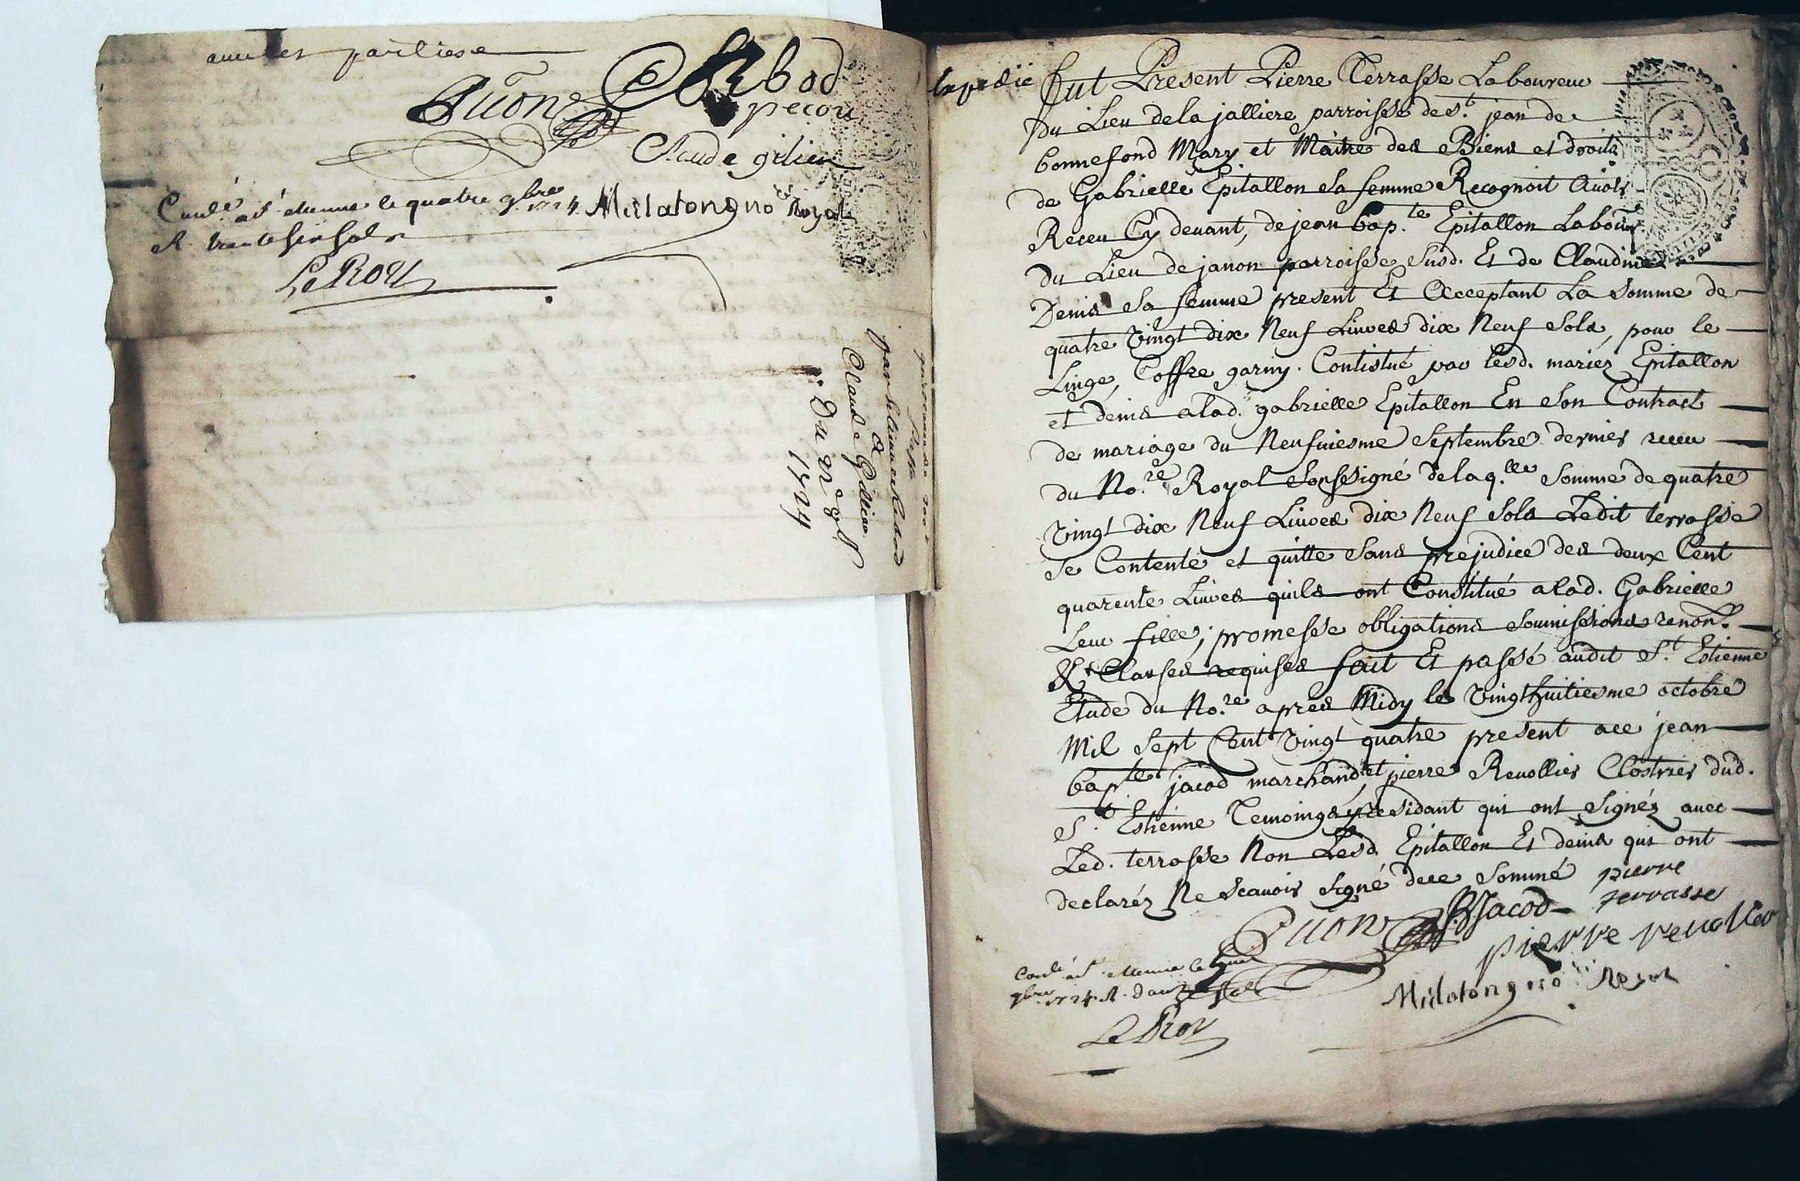 avec les parties
Arbod
Guion
pecou
Claude gilier
Conlé a st etienne le quatre 9bre 1724. Mislatong no.re Royal
R. trente six sols
LeRoy
Claude Gillier
Du 22e 8bre
1724
Fut Present Pierre Terrasse Laboureur
Du Lieu de la jalliere parroisse de st. jean de
bonnefond Mary et Maitre des Biens et droits
de Gabrielle Epitallon sa femme Recognoit avoir
Receu Cy devant, de jean bap.te Epitallon Labour
du Lieu de janon parroisse susd. Et de Claudine
Denis sa femme present Et acceptant La somme de
quatre vingt dix Neuf Livres dix Neuf sols, pour le
Linge, Coffre garny. Contistué par lesd. mariez Epitallon
et denis a lad. gabrielle Epitallon En son Contract
de mariage du Neufviesme septembre dernier receu
du No.re Royal soussigné de laq.lle somme de quatre
vingt dix Neuf Livres dix Neuf sols Ledit terrasse
se Contente et quitte sans prejudice des deux Cent
quarente Livres quils ont Constitué a lad. Gabrielle
Leur fille; promesse obligations soumissions renon.
& Clauses requises fait Et passé audit St. Estienne
Etude du No.re apres Midy le vingthuitiesme octobre
Mil sept Cent vingt quatre present a ce jean
bap.te jacod marchand et pierre Revollier Clostrier dud.
St. Estienne Temoings y residant qui ont signéz avec
Led. terrasse Non Lesd. Epitallon Et denis qui ont
declaréz Ne scavoir signé de ce sommé pierre
terrasse
Guion JBJacod
pierre revollier
Conlé a st etienne le
9bre 1724. R. douze sols Mislatong no.re Royal
LeRoy